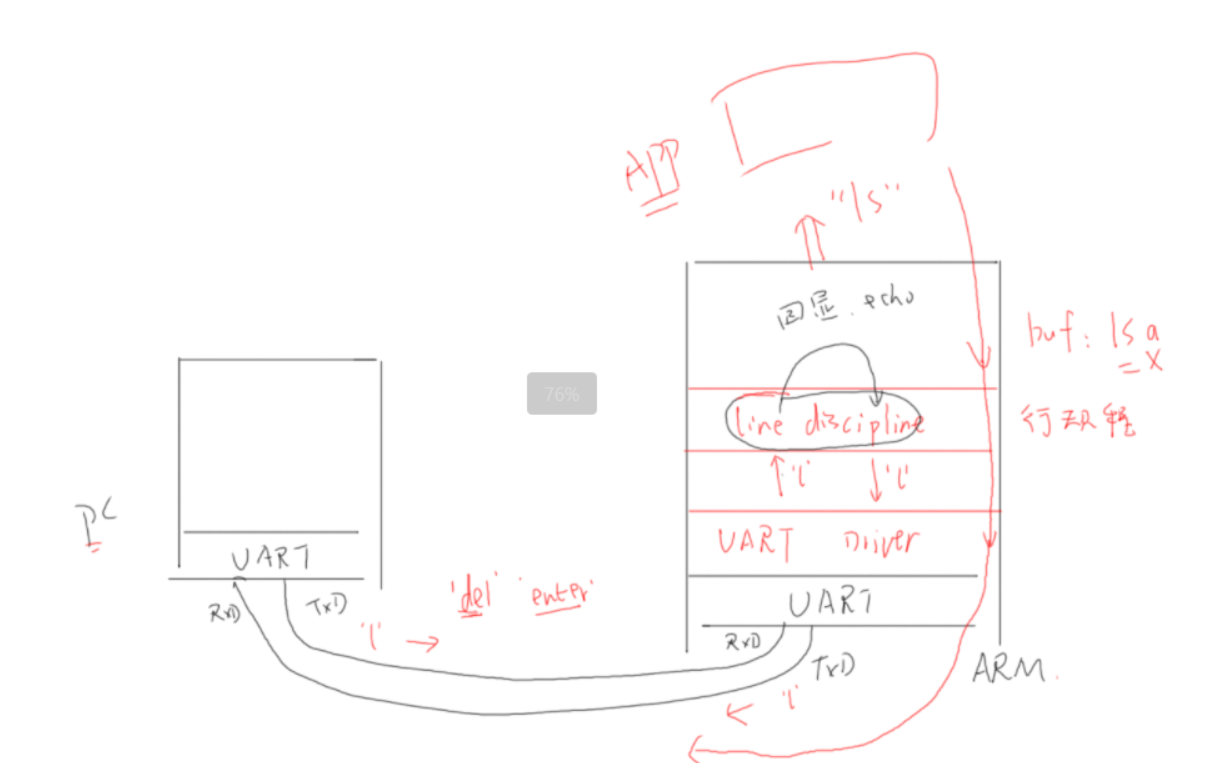 APP
"ls"
回显. echo
buf: ls a
x
76%
line discipline
行规程
'l' 'l'
PC
UART Driver
UART
UART
RxD TxD
'l' 'del' 'enter'
RxD TxD
ARM.
'l'